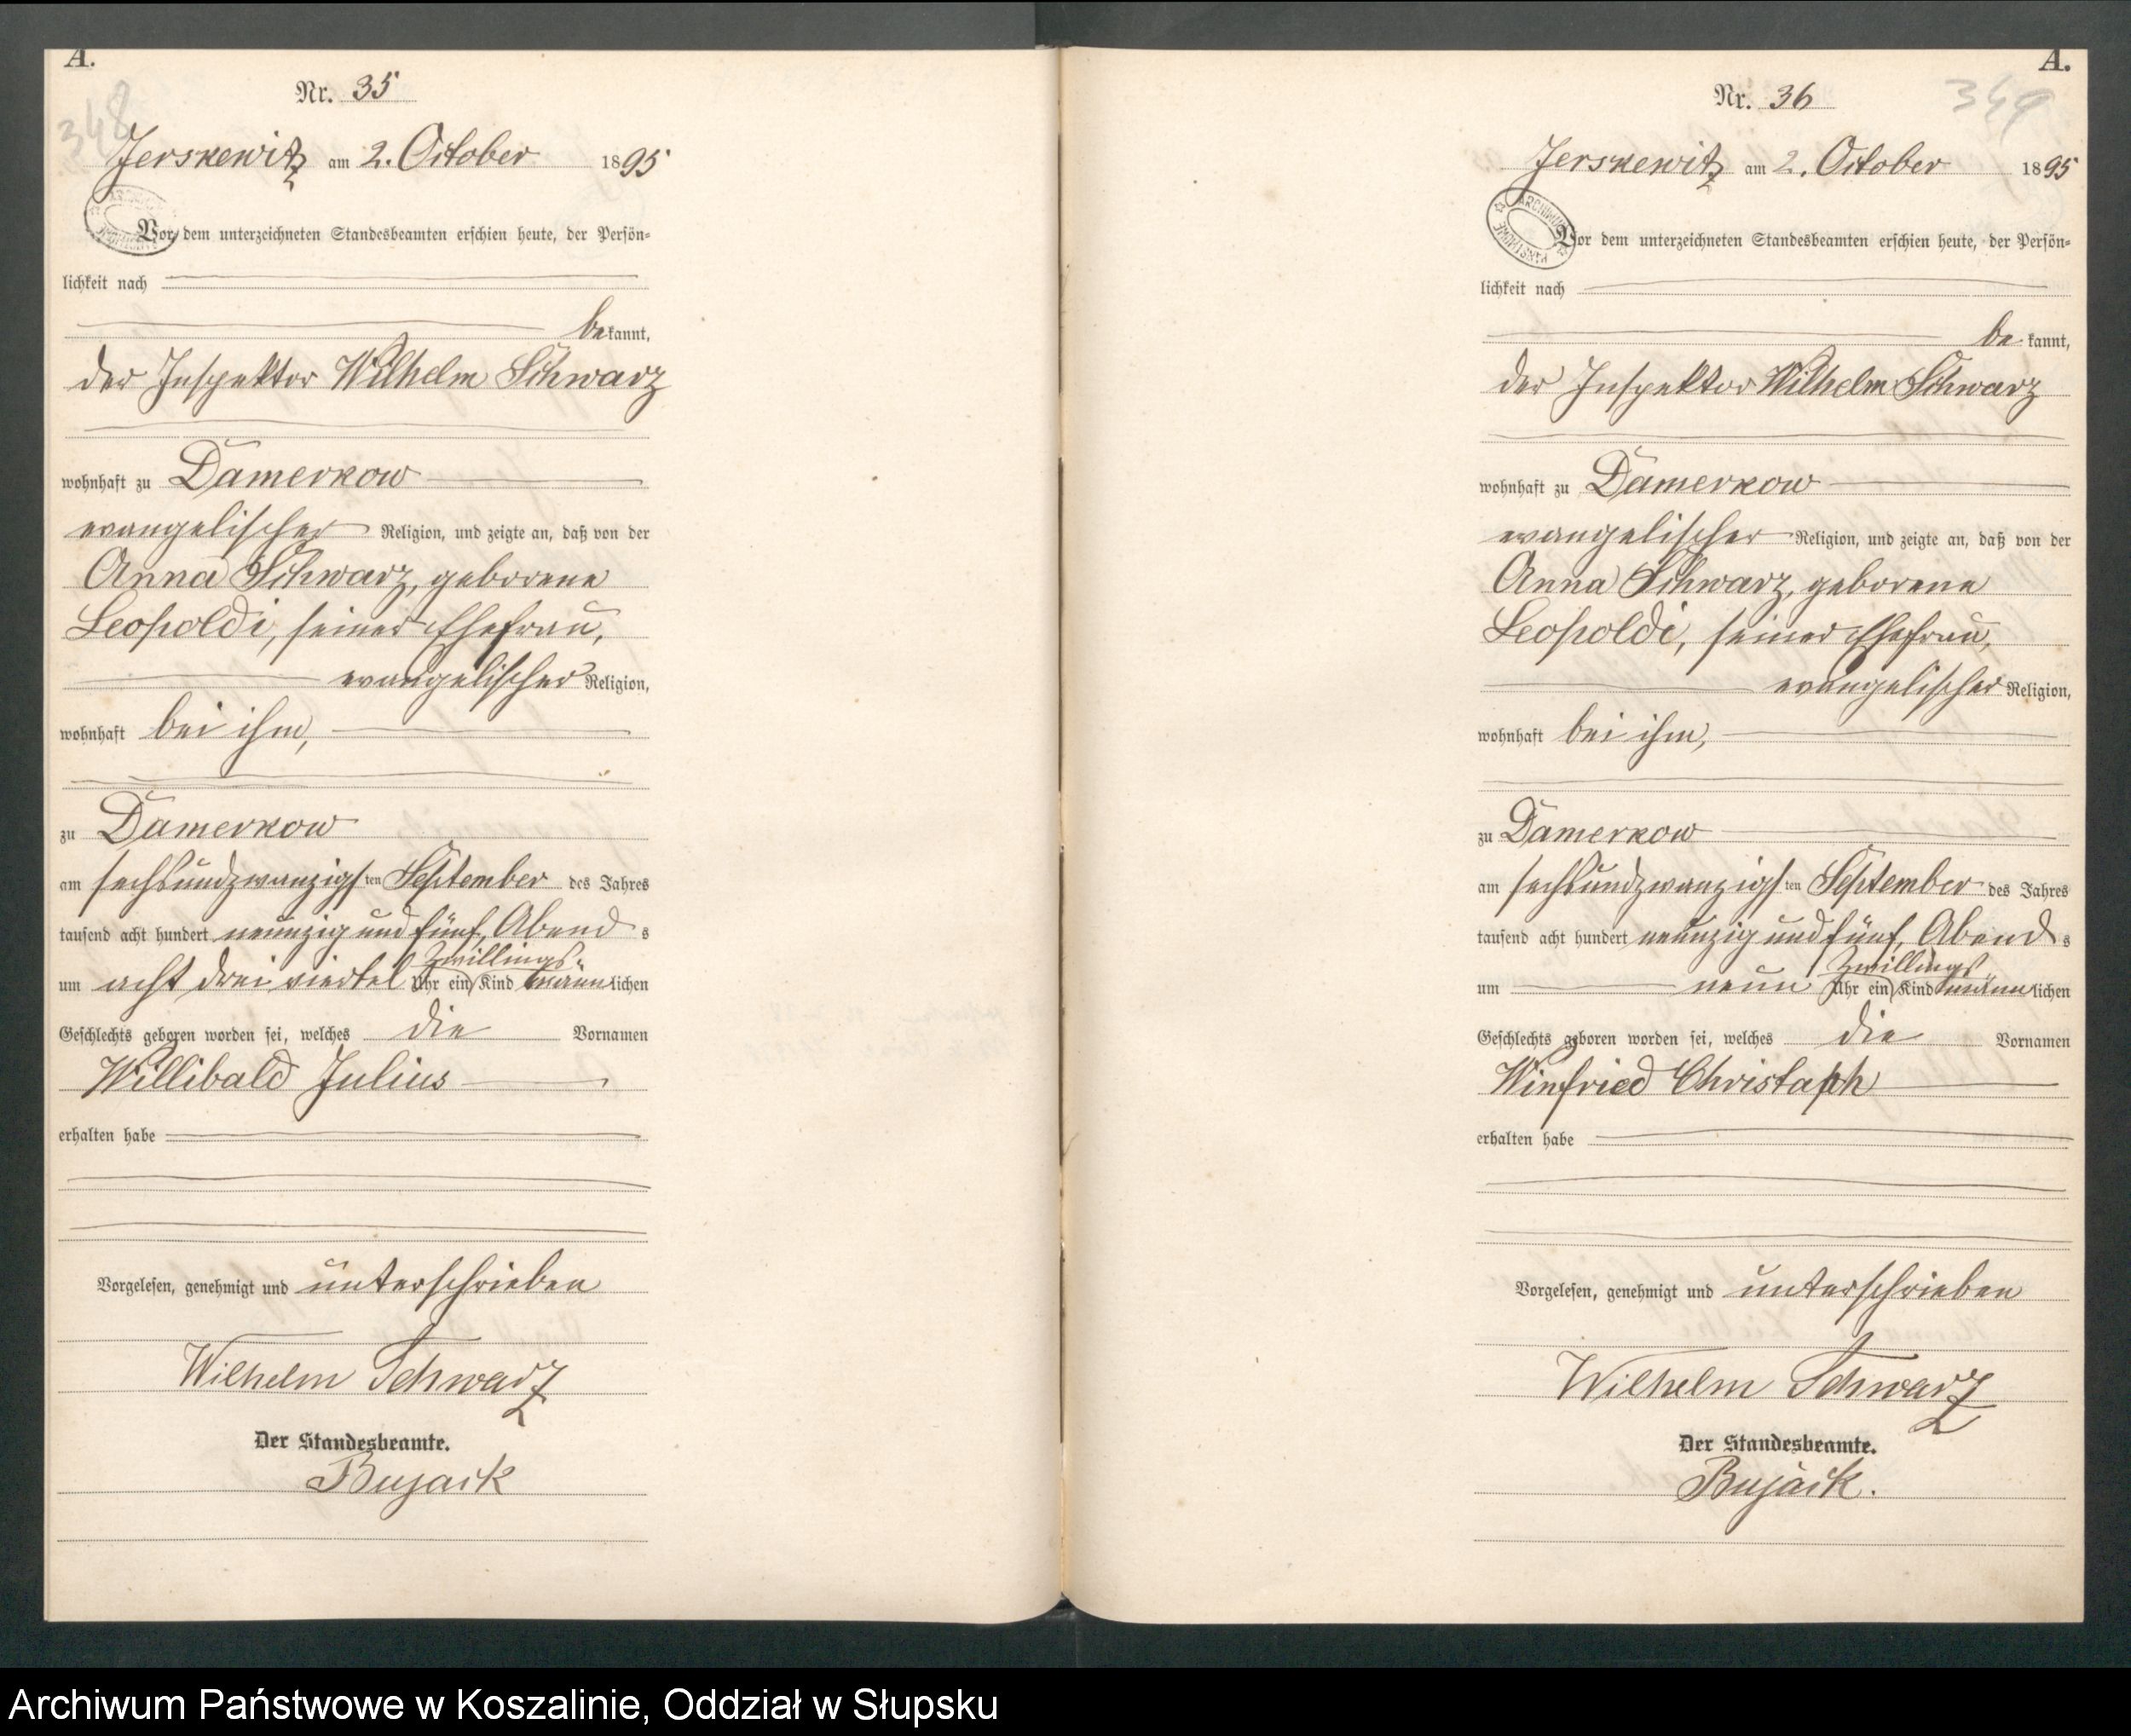 A.
348
Nr. 35
Jerskewitz am 2. October 1895
Vor dem unterzeichneten Standesbeamten erschien heute, der Persön-
lichkeit nach
bekannt,
der Inspektor Wilhelm Schwarz
wohnhaft zu Damerkow
evangelischer Religion, und zeigte an, daß von der
Anna Schwarz, geborene
Leopoldi, seiner Ehefrau,
evangelischer Religion,
wohnhaft bei ihm,
zu Damerkow
am sechsundzwanzigsten September des Jahres
tausend acht hundert neunzig und fünf, Abends
um acht drei viertel Uhr ein Zwillings-Kind männlichen
Geschlechts geboren worden sei, welches die Vornamen
Willibald Julius
erhalten habe
Vorgelesen, genehmigt und unterschrieben
Wilhelm Schwarz
Der Standesbeamte.
Bujack
A.
349
Nr. 36
Jerskewitz am 2. October 1895
Vor dem unterzeichneten Standesbeamten erschien heute, der Persön-
lichkeit nach
bekannt,
der Inspektor Wilhelm Schwarz
wohnhaft zu Damerkow
evangelischer Religion, und zeigte an, daß von der
Anna Schwarz, geborene
Leopoldi, seiner Ehefrau,
evangelischer Religion,
wohnhaft bei ihm,
zu Damerkow
am sechsundzwanzigsten September des Jahres
tausend acht hundert neunzig und fünf, Abends
um neun Uhr ein Zwillings-Kind männlichen
Geschlechts geboren worden sei, welches die Vornamen
Winfried Christaph
erhalten habe
Vorgelesen, genehmigt und unterschrieben
Wilhelm Schwarz
Der Standesbeamte.
Bujack.
Archiwum Państwowe w Koszalinie, Oddział w Słupsku